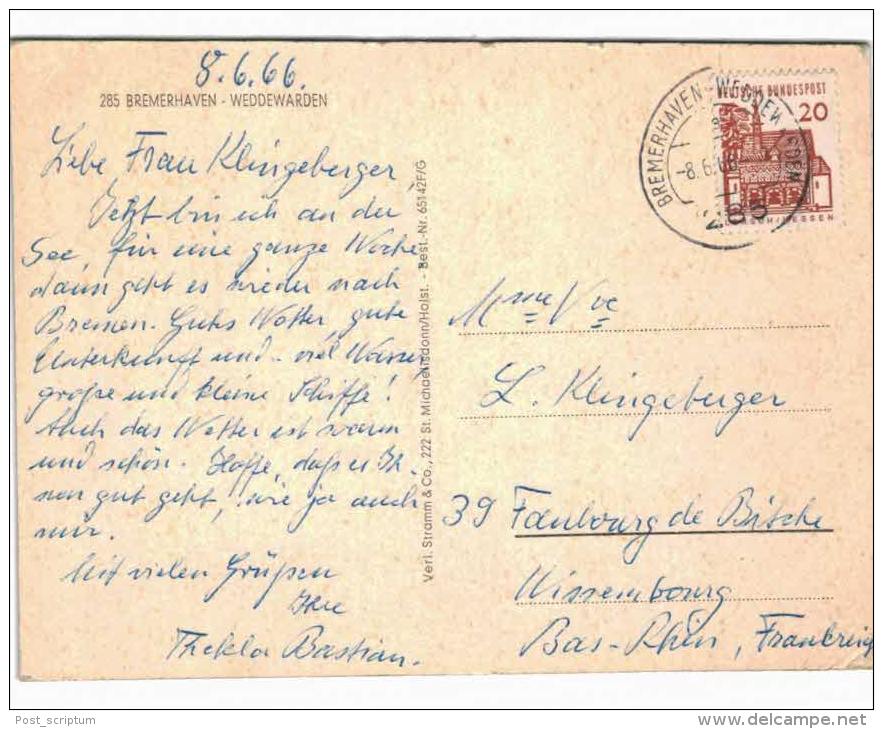 8.6.66.
285 BREMERHAVEN - WEDDEWARDEN
Liebe Frau Klingeberger
Jetzt bin ich an der
See, für eine ganze Woche
dann geht es wieder nach
Bremen. Gutes Wetter, gute
Unterkunft und - viel Wasser,
große und kleine Schiffe!
Auch das Wetter ist warm
und schön. Hoffe, daß es Ih-
nen gut geht, wie ja auch
mir.
Mit vielen Grüßen
Ihre
Thekla Bastian.
Verl. Stramm & Co., 222 St. Michaelisdonn/Holst. - Best.-Nr. 65142F/G
BREMERHAVEN-WEDDEWARDEN
-8.6.66
DEUTSCHE BUNDESPOST
20
LORSCH/HESSEN
Mme Vve
L. Klingeberger
39 Faubourg de Bitche
Wissembourg
Bas-Rhin, Frankreich
Post_scriptum
www.delcampe.net